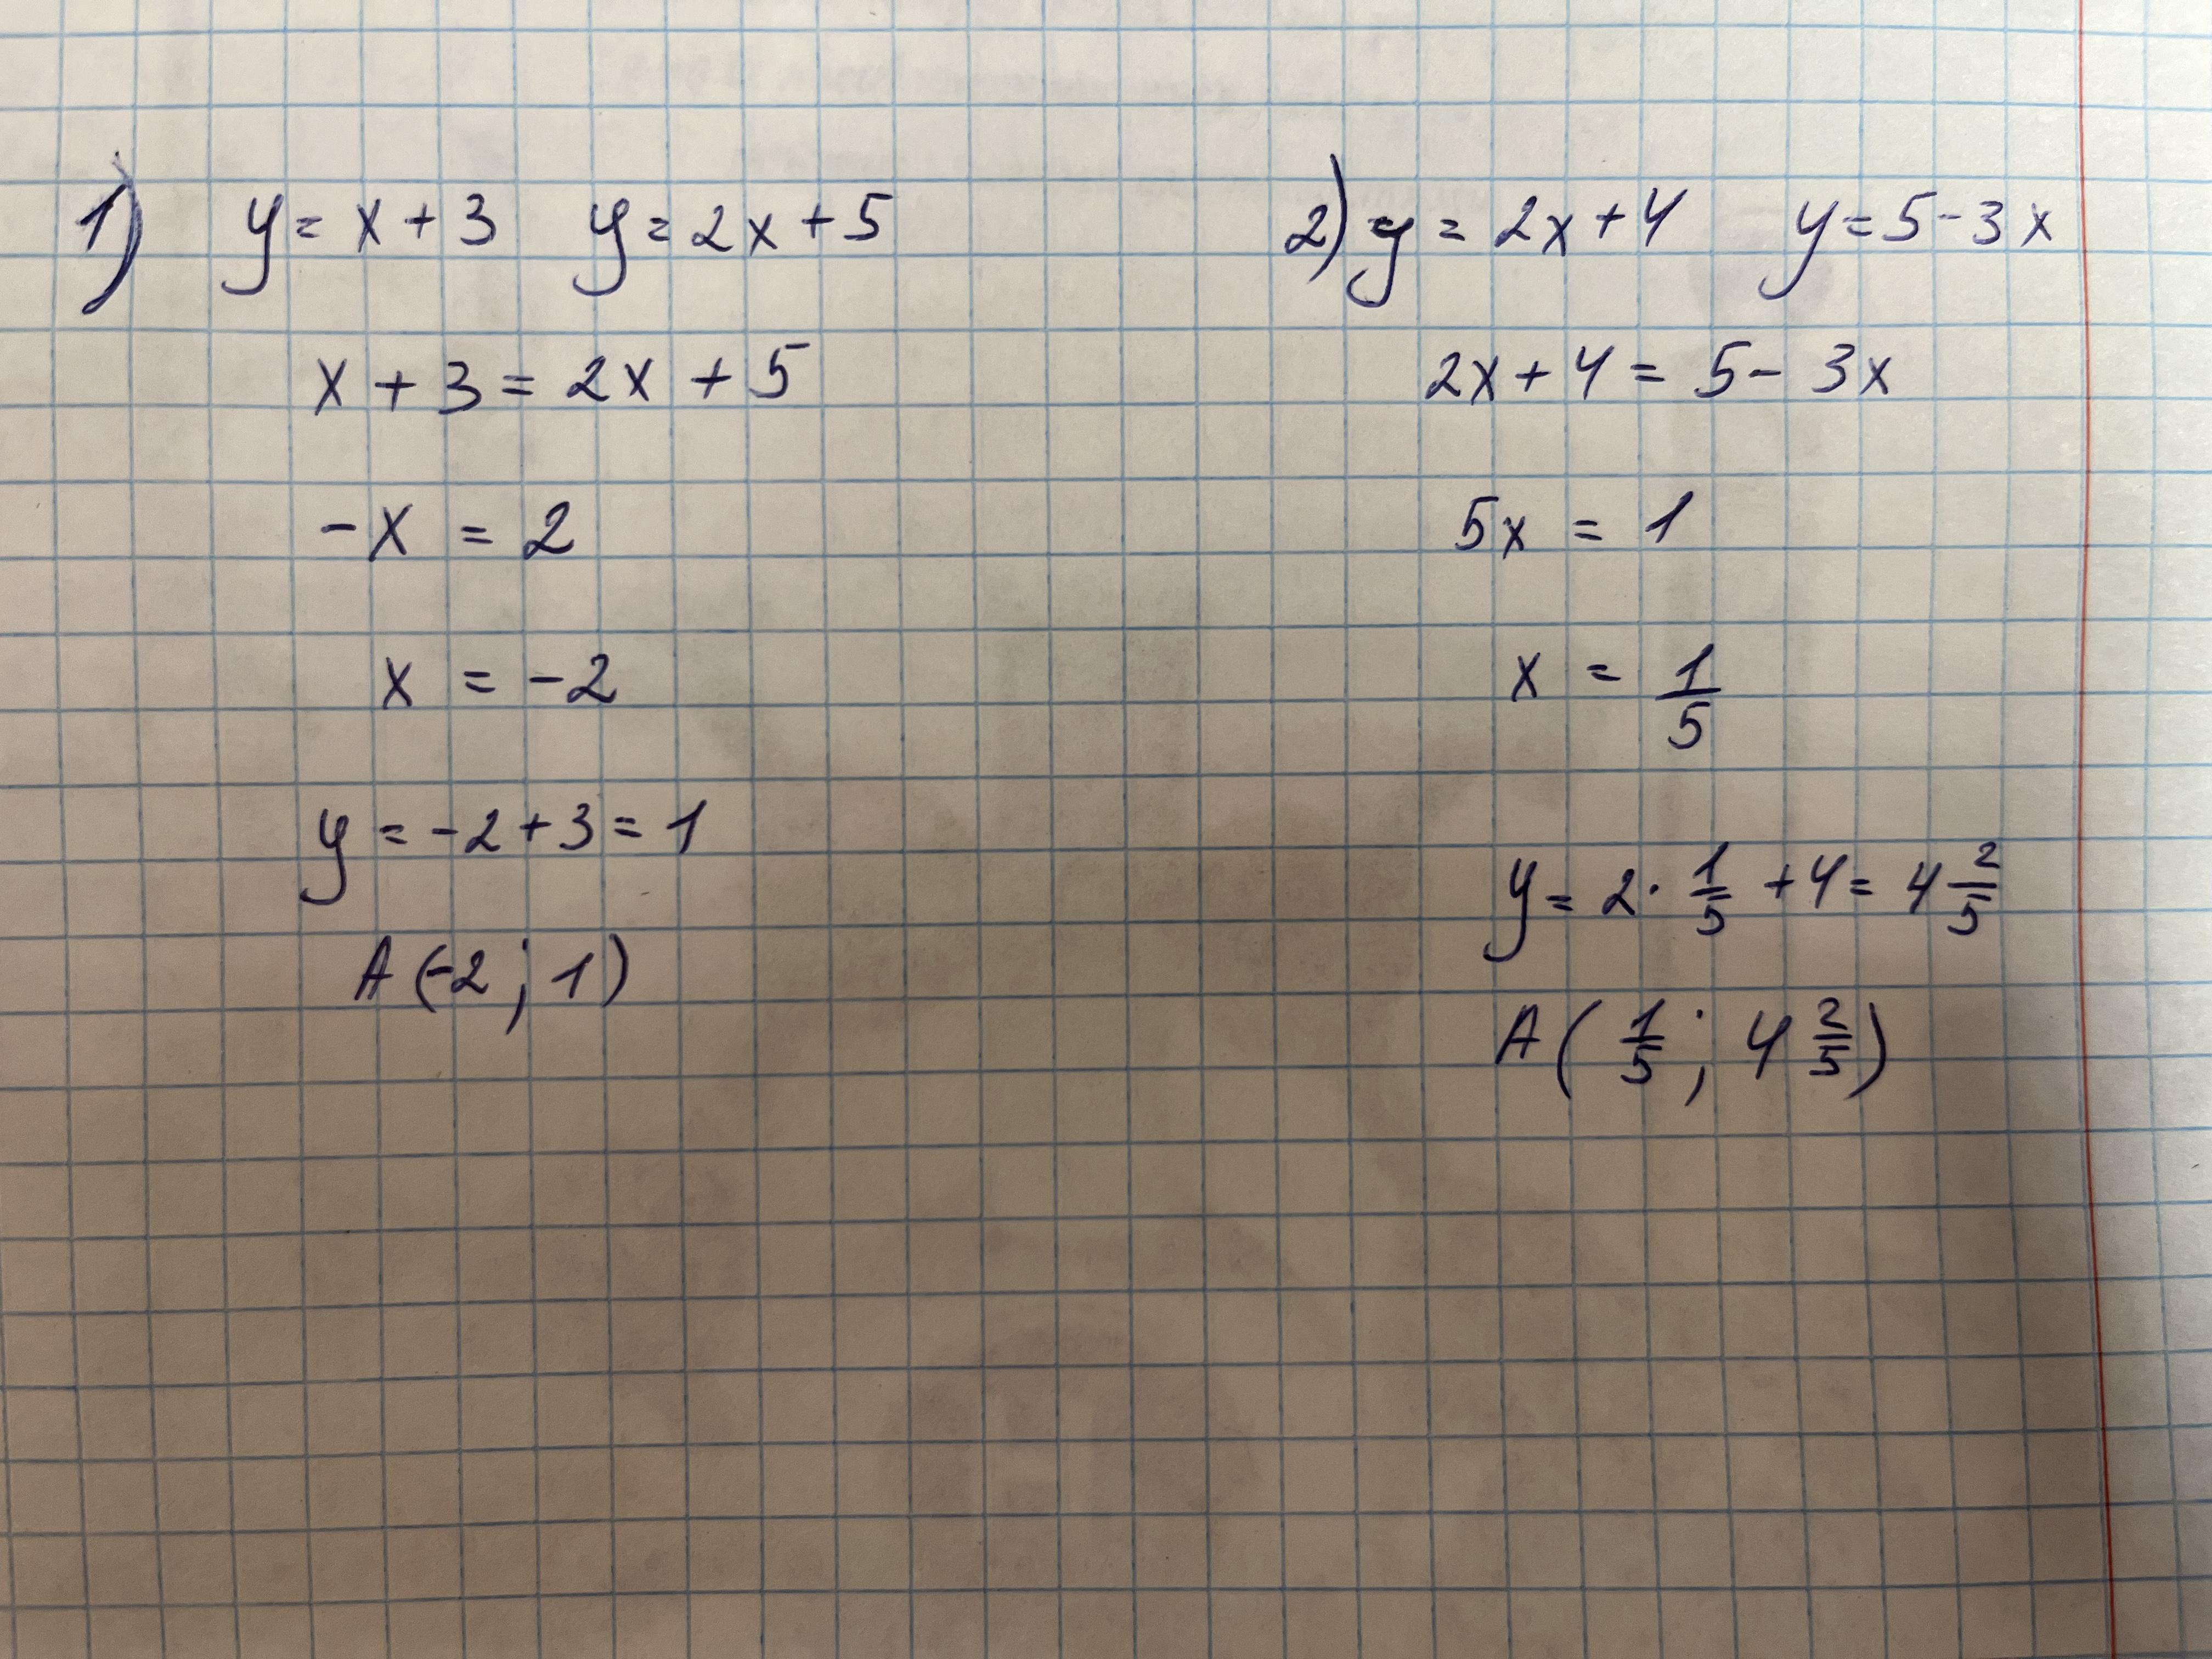 1) y = x + 3 y = 2x + 5
x + 3 = 2x + 5
-x = 2
x = -2
y = -2 + 3 = 1
A (-2 ; 1)
2) y = 2x + 4 y = 5 - 3x
2x + 4 = 5 - 3x
5x = 1
x = 1/5
y = 2 · 1/5 + 4 = 4 2/5
A ( 1/5 ; 4 2/5 )